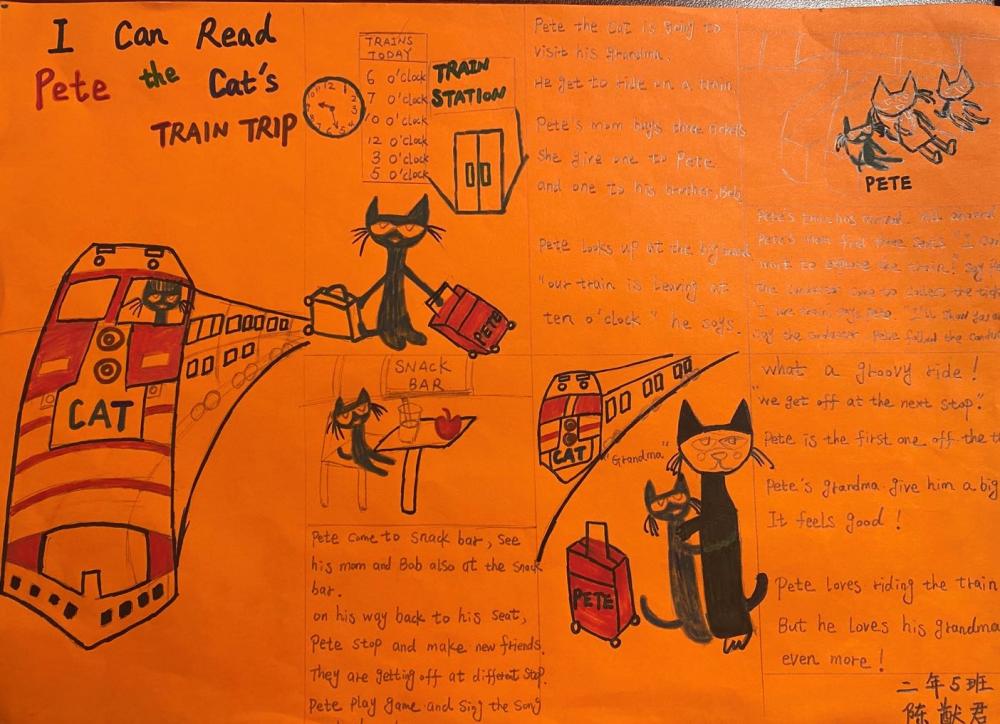 I Can Read
Pete the Cat's
TRAIN TRIP
TRAINS
TODAY
6 o'clock
7 o'clock
10 o'clock
12 o'clock
3 o'clock
5 o'clock
TRAIN
STATION
CAT
PETE
SNACK
BAR
Pete come to snack bar, see
his mom and Bob also at the snack
bar.
on his way back to his seat,
Pete stop and make new friends.
They are getting off at different stop.
Pete play game and sing the song
Pete the Cat is going to
visit his grandma.
He get to ride on a train.
Pete's mom buys three tickets
She give one to Pete
and one to his brother, Bob
Pete looks up at the big board
"our train is leaving at
ten o'clock" he says.
CAT
"Grandma"
PETE
PETE
Pete's mom find three seats. "I
to explore the train!" say
the conductor
Pete follow the
what a groovy ride!
"we get off at the next stop".
Pete is the first one off the
Pete's grandma give him a big
It feels good!
Pete loves riding the train
But he loves his grandma
even more!
二年5班
陈猷君